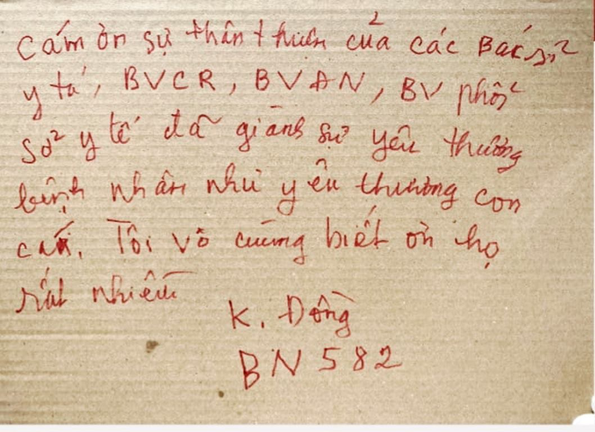 Cám ơn sự thân thiện của các Bác sỹ
y tá, BVCR, BVAN, BV phổi
Sở y tế đã giành sự yêu thương
bệnh nhân như yêu thương con
cái. Tôi vô cùng biết ơn họ
rất nhiều
K. Đông
BN 582